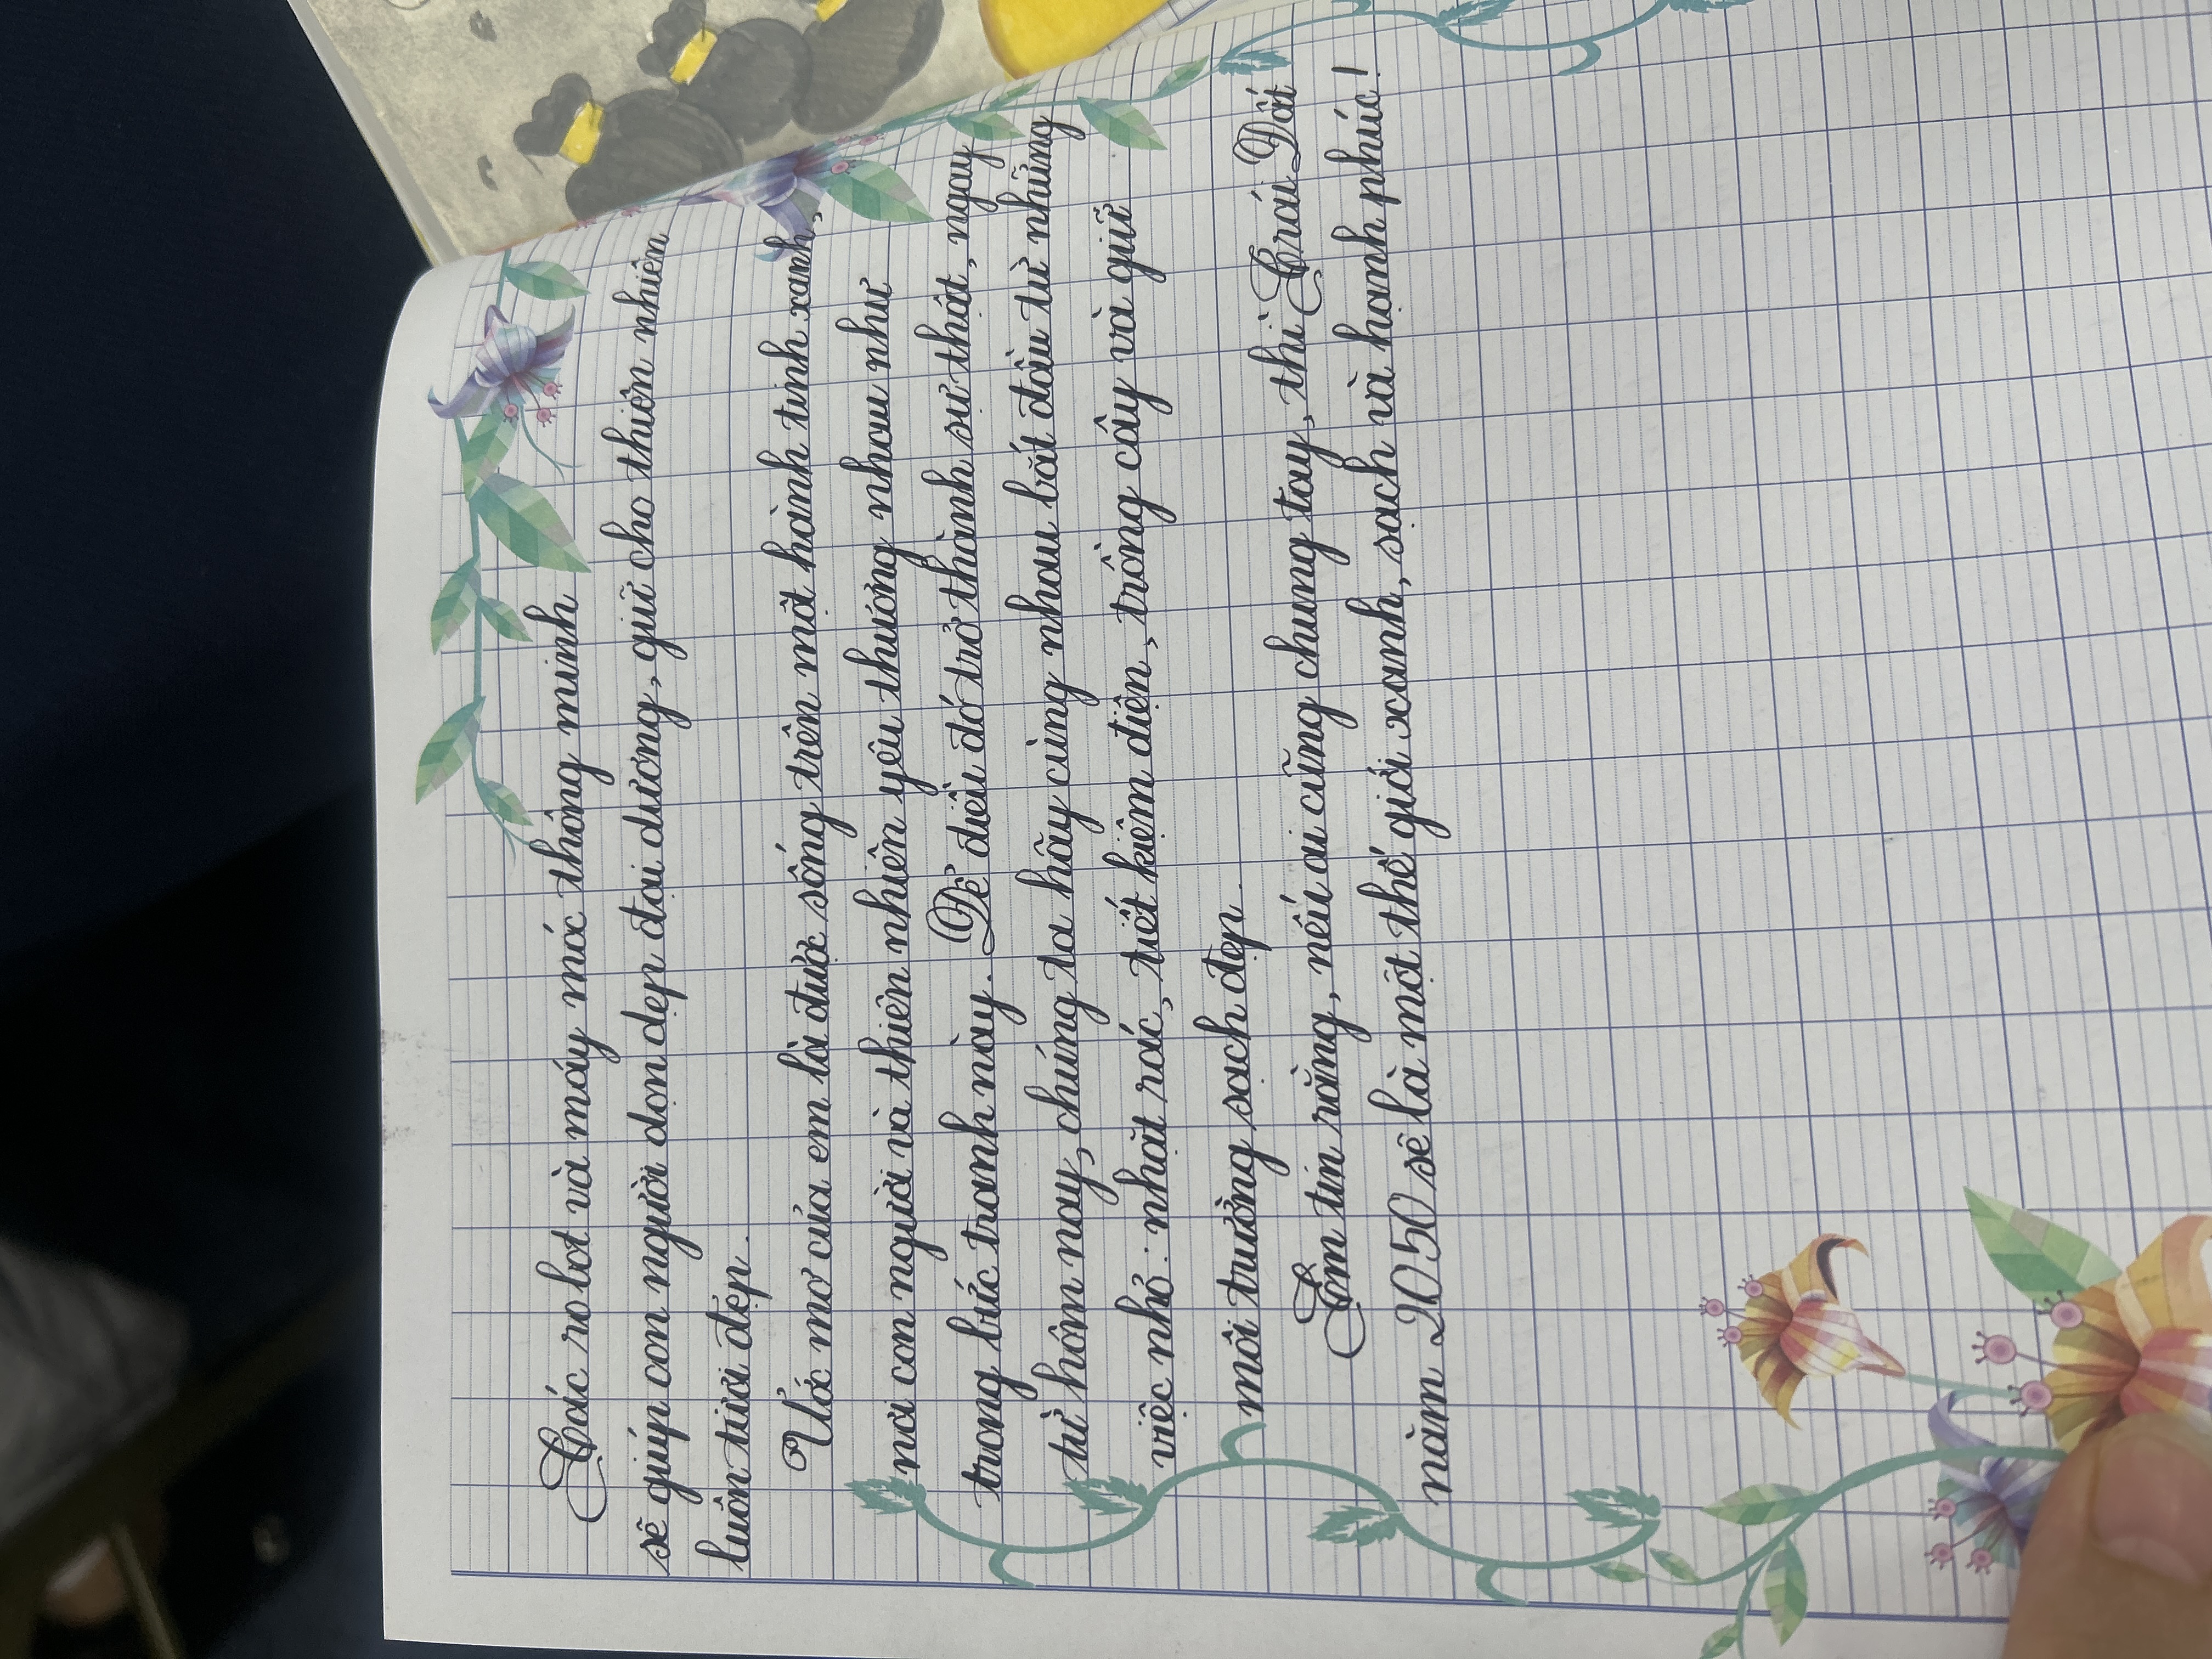 Các robot và máy móc thông minh
sẽ giúp con người dọn dẹp đại dương, giữ cho thiên nhiên
luôn tươi đẹp.
Ước mơ của em là được sống trên một hành tinh xanh,
nơi con người và thiên nhiên yêu thương nhau như
trong bức tranh này. Để điều đó trở thành sự thật, ngay
từ hôm nay, chúng ta hãy cùng nhau bắt đầu từ những
việc nhỏ: nhặt rác, tiết kiệm điện, trồng cây và giữ
môi trường sạch đẹp.
Em tin rằng, nếu ai cũng chung tay, thì Trái Đất
năm 2050 sẽ là một thế giới xanh, sạch và hạnh phúc!